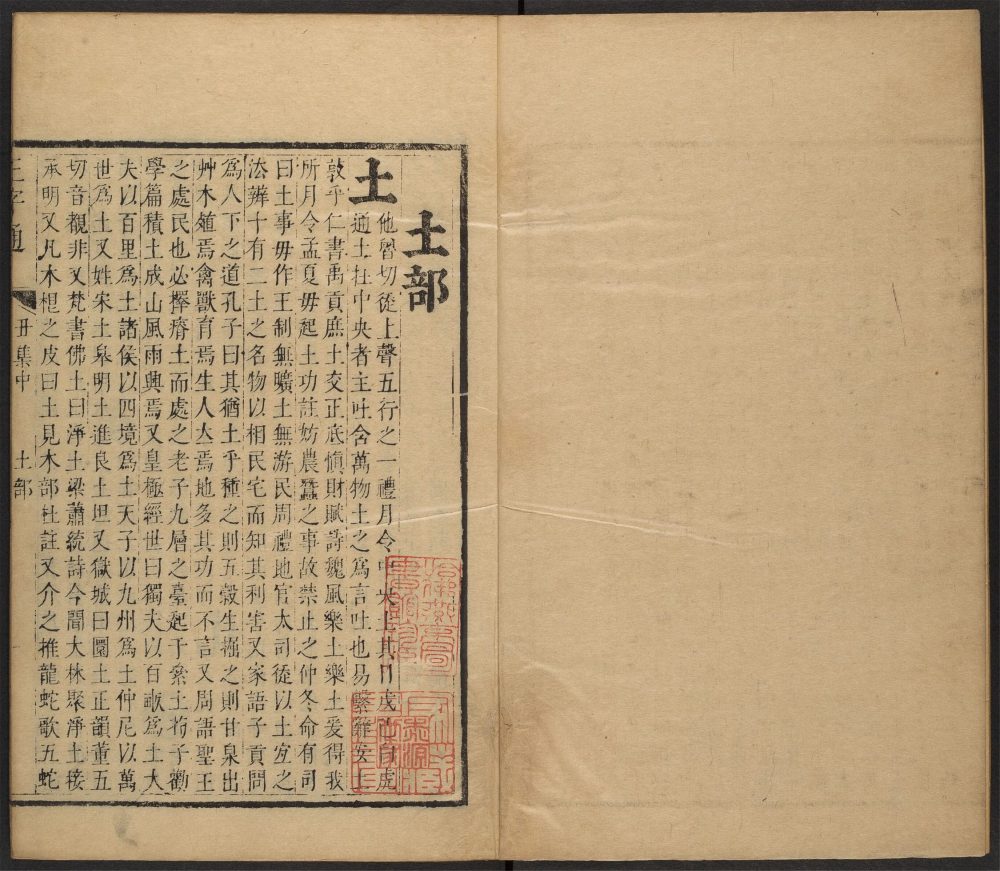 土部
土 他魯切從上聲五行之一禮月令中央土其日戊己白虎
通土在中央者主吐含萬物土之爲言吐也易繫辭安土
敦乎仁書禹貢庶土交正底愼財賦詩魏風樂土樂土爰得我
所月令孟夏毋起土功註妨農蠶之事故禁止之仲冬命有司
曰土事毋作王制無曠土無游民周禮地官大司徒以土宜之
法辨十有二土之名物以相民宅而知其利害又家語子貢問
爲人下之道孔子曰其猶土乎種之則五穀生掘之則甘泉出
艸木殖焉禽獸育焉生人立焉地多其功而不言又周語聖王
之處民也必擇瘠土而處之老子九層之臺起于絫土荀子勸
學篇積土成山風雨興焉又皇極經世曰獨夫以百畝爲土大
夫以百里爲土諸侯以四境爲土天子以九州爲土仲尼以萬
世爲土又姓宋土皋明土進良土坦又獄城曰圜土正韻董五
切音覩非又梵書佛土曰淨土梁蕭統詩今聞大林聚淨土接
承明又凡木根之皮曰土見木部杜註又介之推龍蛇歌五蛇
正字通 丑集中 土部